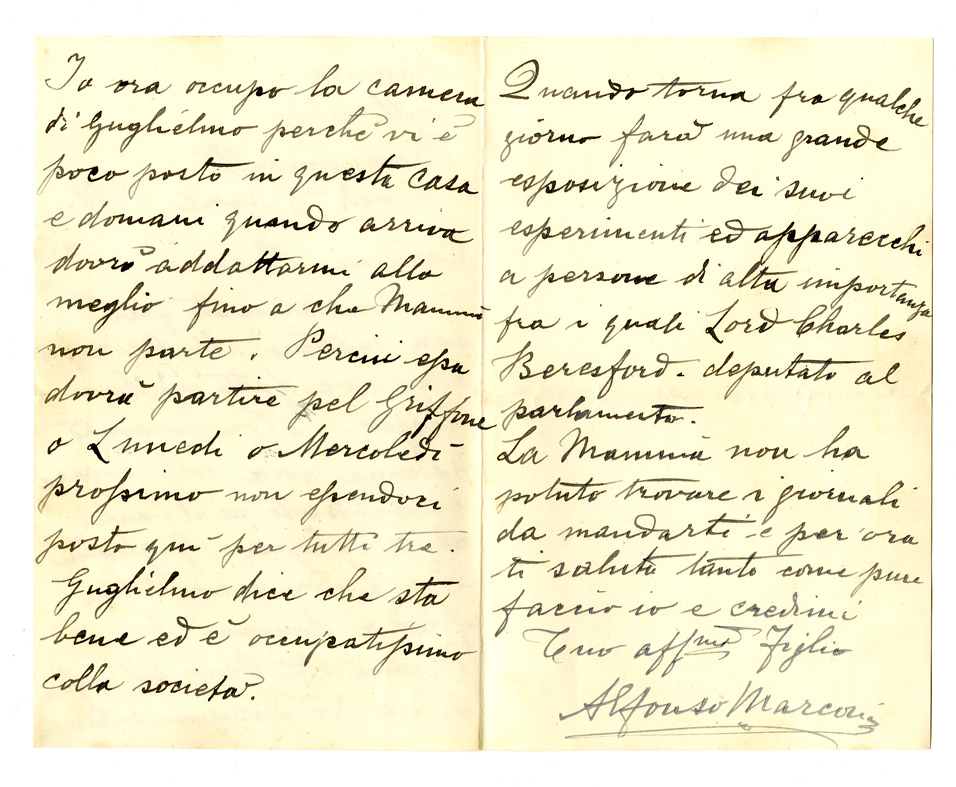 Io ora occupo la camera
di Guglielmo perchè vi è
poco posto in questa casa
e domani quando arriva
dovrò addattarmi alla
meglio fino a che Mammà
non parte. Percui essa
dovrà partire pel Griffone
o Lunedi o Mercoledì
prossimo non essendovi
posto quì per tutti tre.
Guglielmo dice che sta
bene ed è occupatissimo
colla società.
Quando torna fra qualche
giorno farà una grande
esposizione dei suoi
esperimenti ed apparecchi
a persone di alta importanza
fra i quali Lord Charles
Beresford. deputato al
parlamento.
La Mammà non ha
potuto trovare i giornali
da mandarti e per ora
ti saluta tanto come pure
faccio io e credimi
Tuo affmo Figlio
Alfonso Marconi